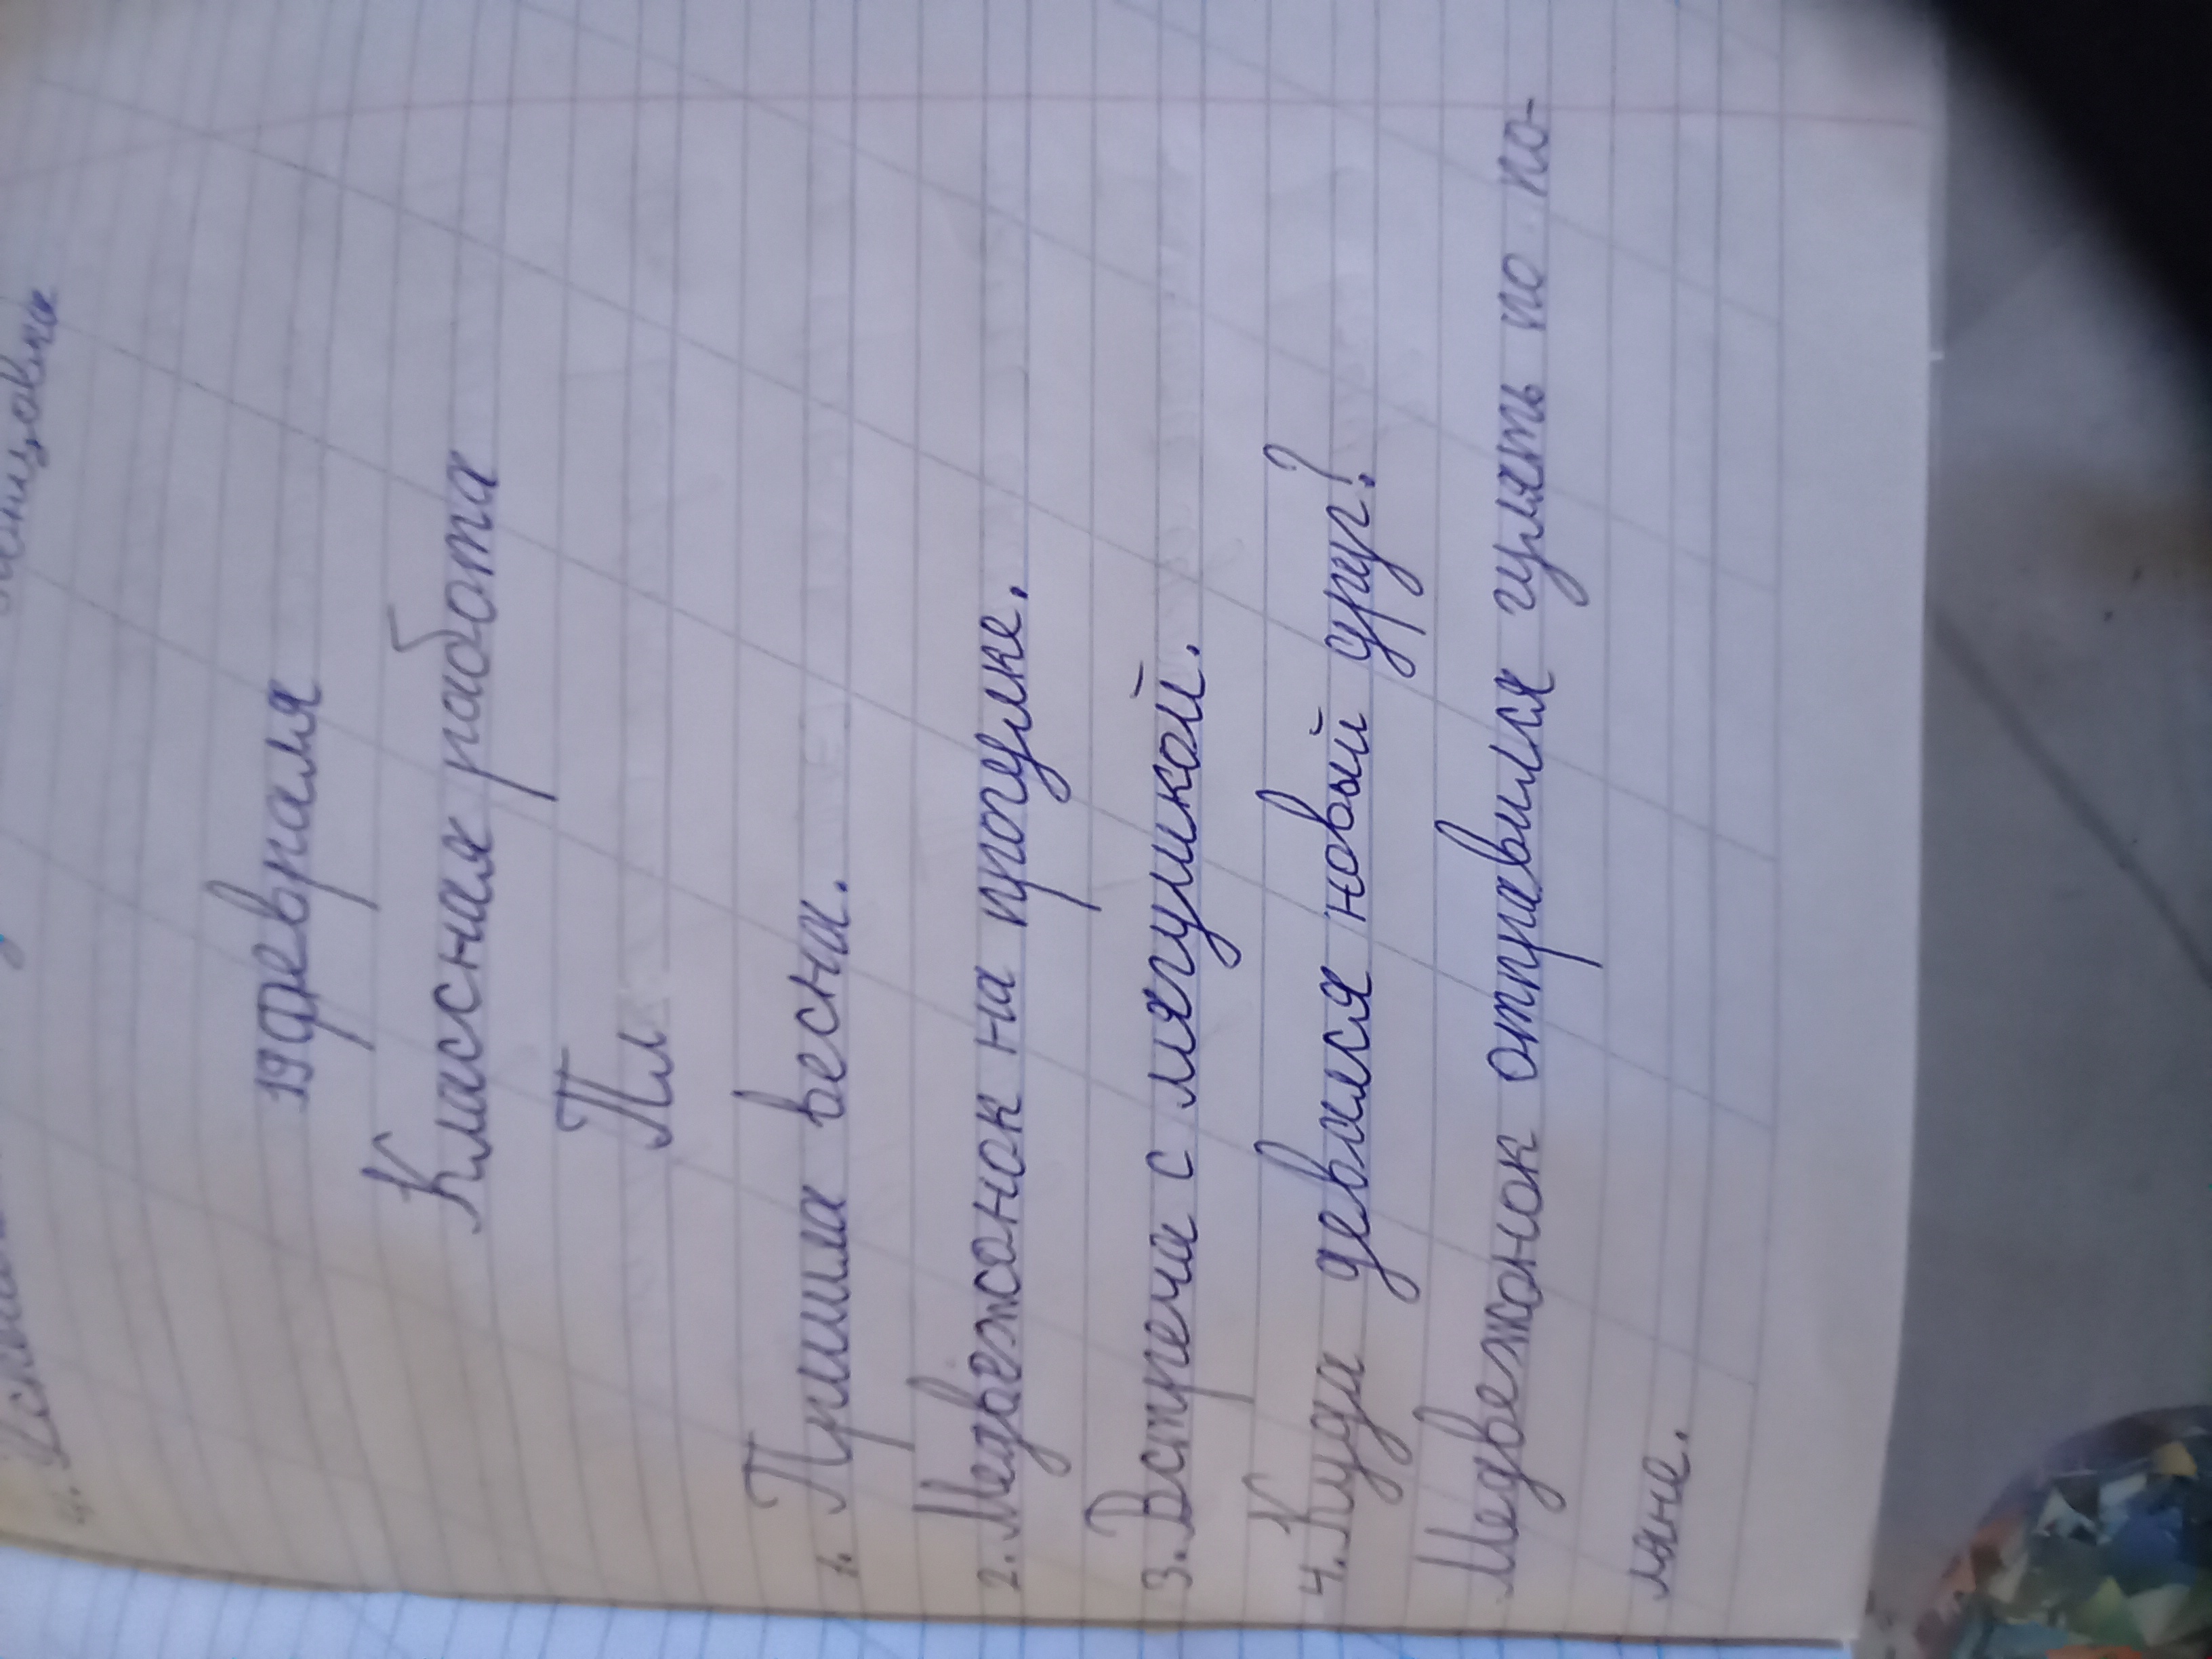 19 февраля
Классная работа
Пл
1. Пришла весна.
2. Медвежонок на прогулке.
3. Встреча с лягушкой.
4. Куда девался новый друг?
Медвежонок отправился гулять по по-
ляне.